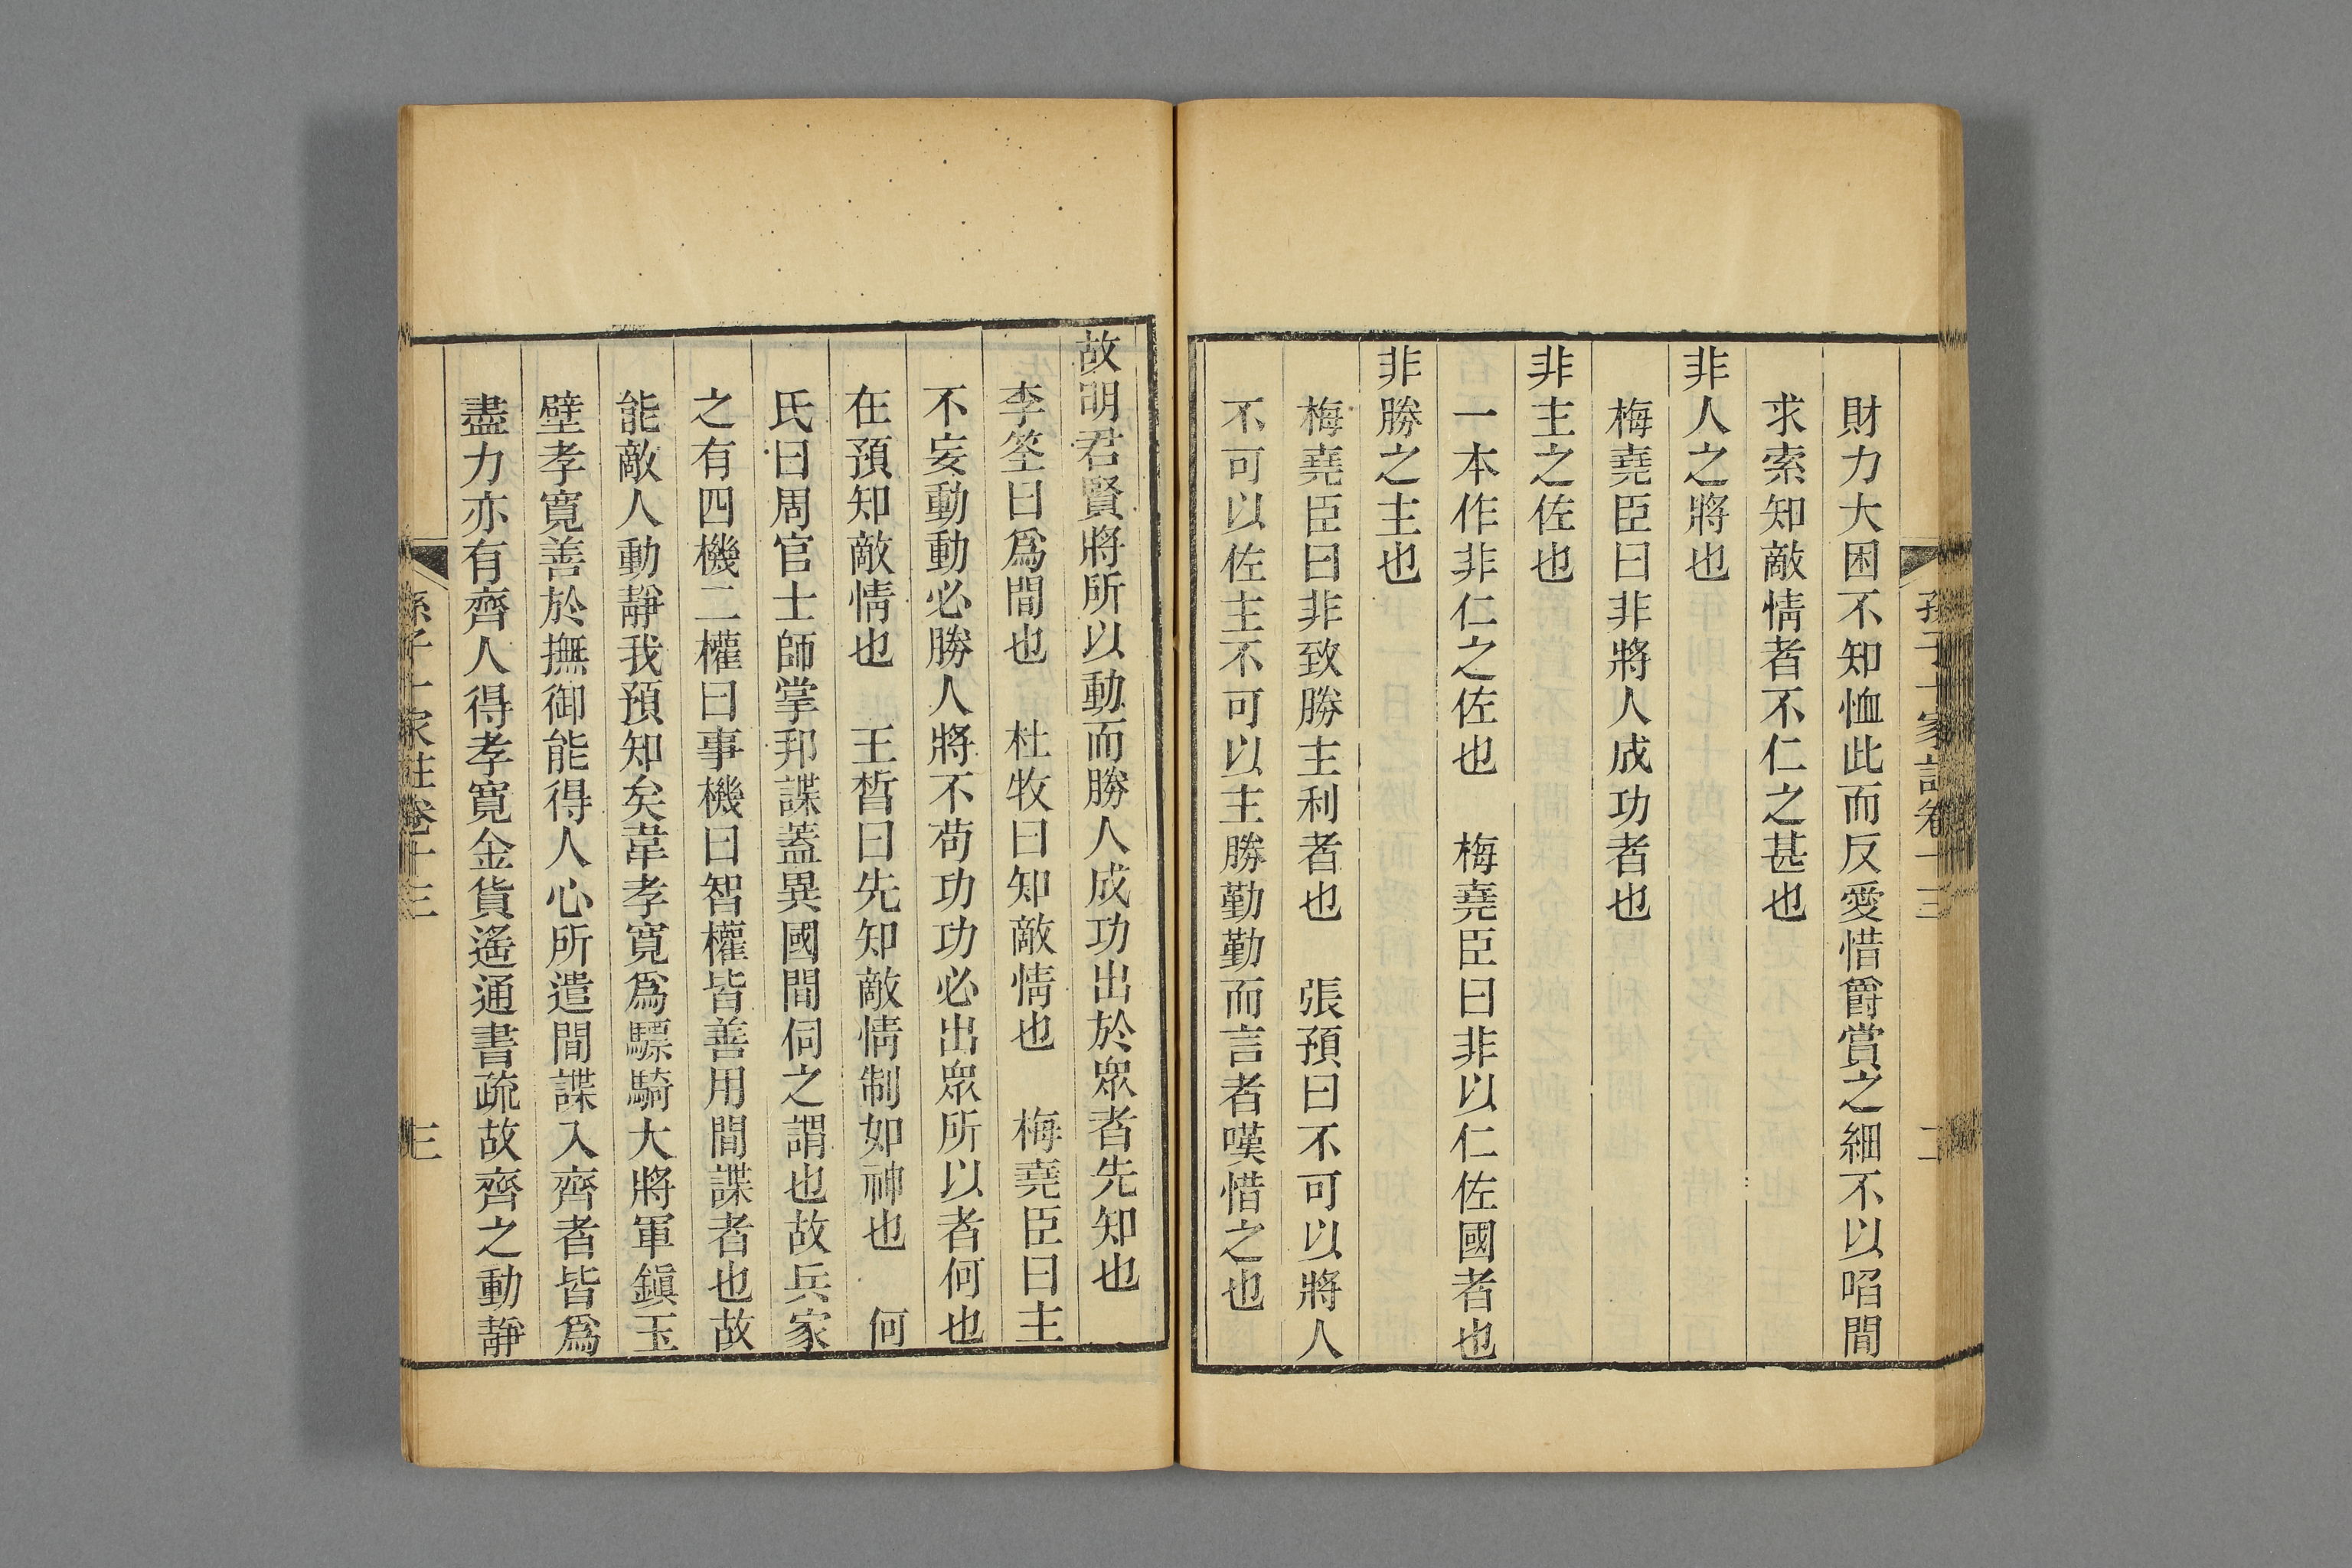 孫子十家註卷十三
二
財力大困不知恤此而反愛惜爵賞之細不以啗間
求索知敵情者不仁之甚也
非人之將也
梅堯臣曰非將人成功者也
非主之佐也
一本作非仁之佐也　梅堯臣曰非以仁佐國者也
非勝之主也
梅堯臣曰非致勝主利者也　張預曰不可以將人
不可以佐主不可以主勝勤勤而言者嘆惜之也
故明君賢將所以動而勝人成功出於眾者先知也
李筌曰爲間也　杜牧曰知敵情也　梅堯臣曰主
不妄動動必勝人將不苟功功必出眾所以者何也
在預知敵情也　王晳曰先知敵情制如神也　何
氏曰周官士師掌邦諜蓋異國間伺之謂也故兵家
之有四機二權曰事機曰智權皆善用間諜者也故
能敵人動靜我預知矣韋孝寬爲驃騎大將軍鎭玉
壁孝寬善於撫御能得人心所遣間諜入齊者皆爲
盡力亦有齊人得孝寬金貨遙通書疏故齊之動靜
孫子十家註卷十三
三